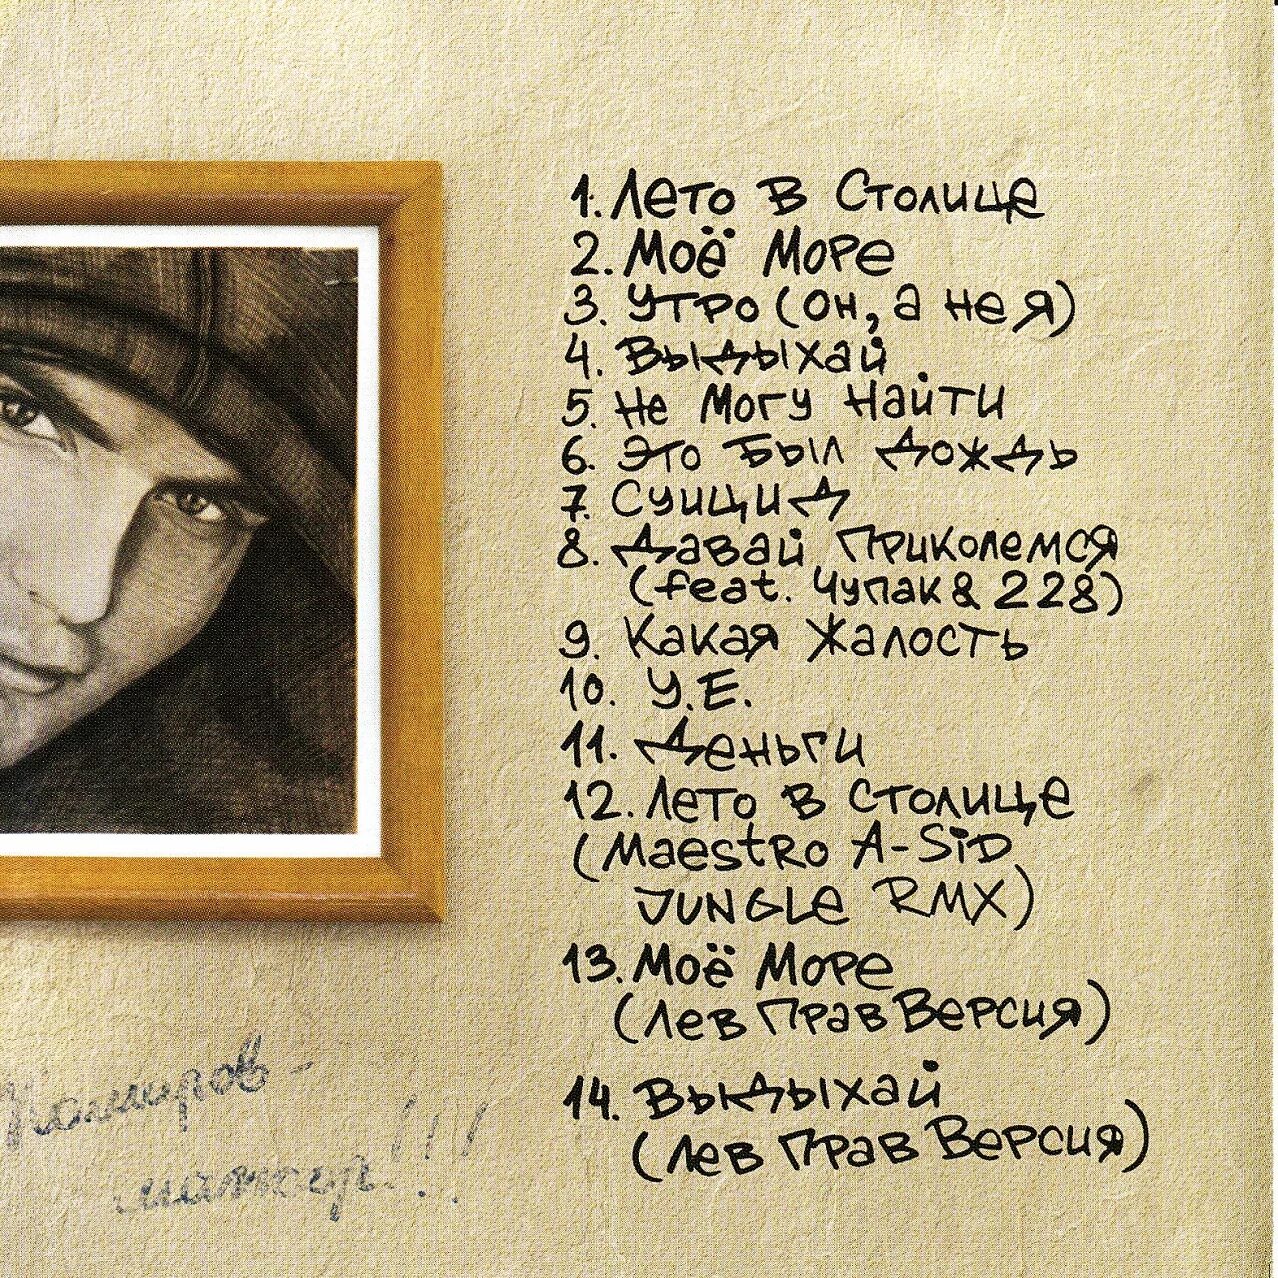 1. Лето в Столице
2. Моё Море
3. Утро (он, а не я)
4. Выдыхай
5. Не Могу Найти
6. Это Был Дождь
7. Суицид
8. Давай Приколемся
(feat. Чупак & 228)
9. Какая Жалость
10. У.Е.
11. Деньги
12. Лето в Столице
(Maestro A-Sid
Jungle RMX)
13. Моё Море
(Лев Прав Версия)
14. Выдыхай
(Лев Прав Версия)